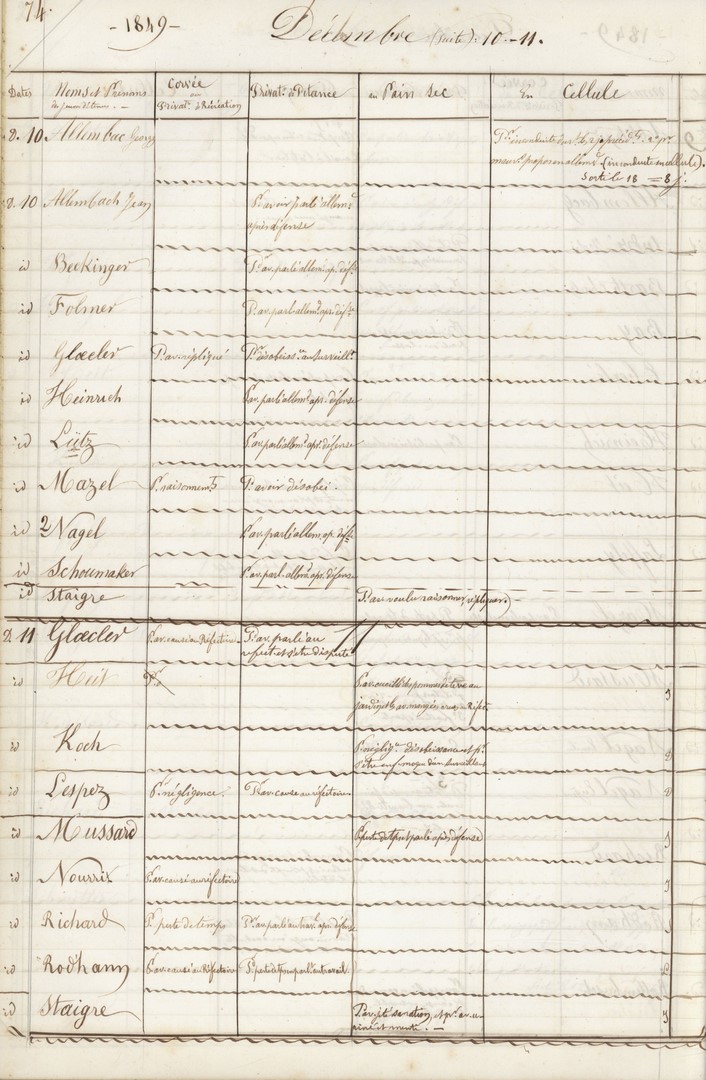 74.
- 1849 -
Décembre (suite). 10-11.
Dates
Noms et Prénoms
des jeunes détenus. -
Corvée
ou
Privat. de Récréation
Privat. de Pitance
au Pain sec
En Cellule
D. 10 Allembac Georg
sortile 18 = 8 j.
D. 10 Allembach Jean
P. avoir parlé allem.d
après défense
id Beckinger P. av. parlé allem. ap. déf.
id Folmer P. av. parl. allem. apr. déf.
id Glœcler P. av. répliqué P. désobéiss. au surveill.
id Heinrich P. av. parlé allem. apr. défense
id Lütz P. av. parlé allem. apr. défense
id Mazel P. raisonnem.ts P. avoir désobéi.
id 2 Nagel P. av. parlé allem. ap. déf.
id Schoumaker P. av. parl. allem. apr. défense
id Staigre P. av. voulu raisonner, répliquer) -
D. 11 Glœcler P. av. causé au Réfectoire P. av. parlé au
réfect. et s'être disputé
id Heit 3
id Koch P. néglig. désobéissance et p.
2
id Lespez P. négligence. P. av. causé au réfectoire 2
id Mussard P. perte de tps et parlé après défense
id Nourrix P. av. causé au réfectoire
id Richard P. perte de temps P. av. parlé au trav. apr. défense
id Rodhann P. av. causé au Réfectoire
id Staigre 3